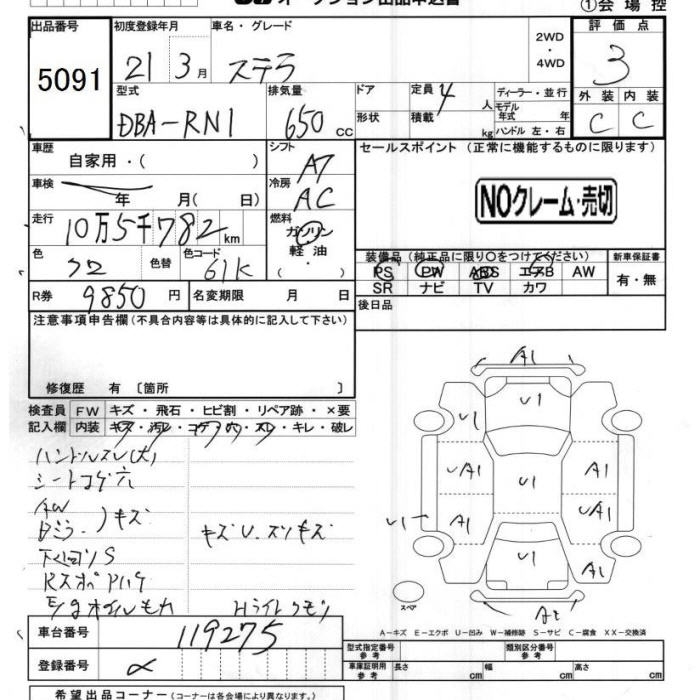 オークション出品申込書
①会場控
出品番号
5091
初度登録年月
21 3月
車名・グレード
ステラ
2WD
・
4WD
評価点
3
型式
DBA-RN1
排気量
650 CC
ドア
形状
定員 4 人
積載 kg
ディーラー・並行
モデル年式 年
ハンドル 左・右
外装
内装
C
C
車歴
自家用・( )
シフト
AT
車検
年 月( 日)
冷房
AC
走行
10万5千782 km
燃料
ガソリン
軽油
( )
色
クロ
色替
色コード
61K
R券
9850 円
名変期限 月 日
セールスポイント (正常に機能するものに限ります)
NOクレーム・売切
装備品 (純正品に限り○をつけてください)
PS PW ABS エアB AW
SR ナビ TV カワ
新車保証書
有・無
後日品
注意事項申告欄 (不具合内容等は具体的に記入して下さい)
修復歴 有 〔箇所 〕
検査員
記入欄
FW キズ・飛石・ヒビ割・リペア跡・×要
内装 キズ・汚レ・コゲ・穴・スレ・キレ・破レ
ハンドルスレ(大)
シートコゲ穴
AW
キズ
キズU.スリキズ
下廻りS
Hライトクモリ
A1
U1
U1
UA1
A1
U1
U1
A1
UA1
U1
A1
A2
スペア
A-キズ E-エクボ U-凹み W-補修跡 S-サビ C-腐食 XX-交換済
車台番号
119275
登録番号
型式指定番号
参考
類別区分番号
参考
車庫証明用
参考
長さ cm
幅 cm
高さ cm
希望出品コーナー (コーナーは各会場により異なります。)